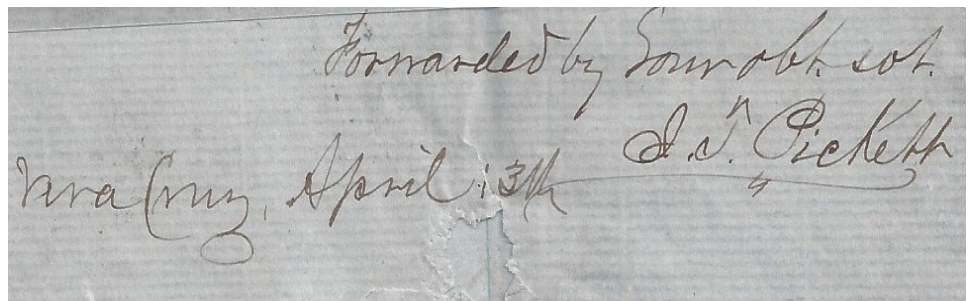 Forwarded by Your obt. svt.
J. T. Pickett
Vera Cruz, April 13th